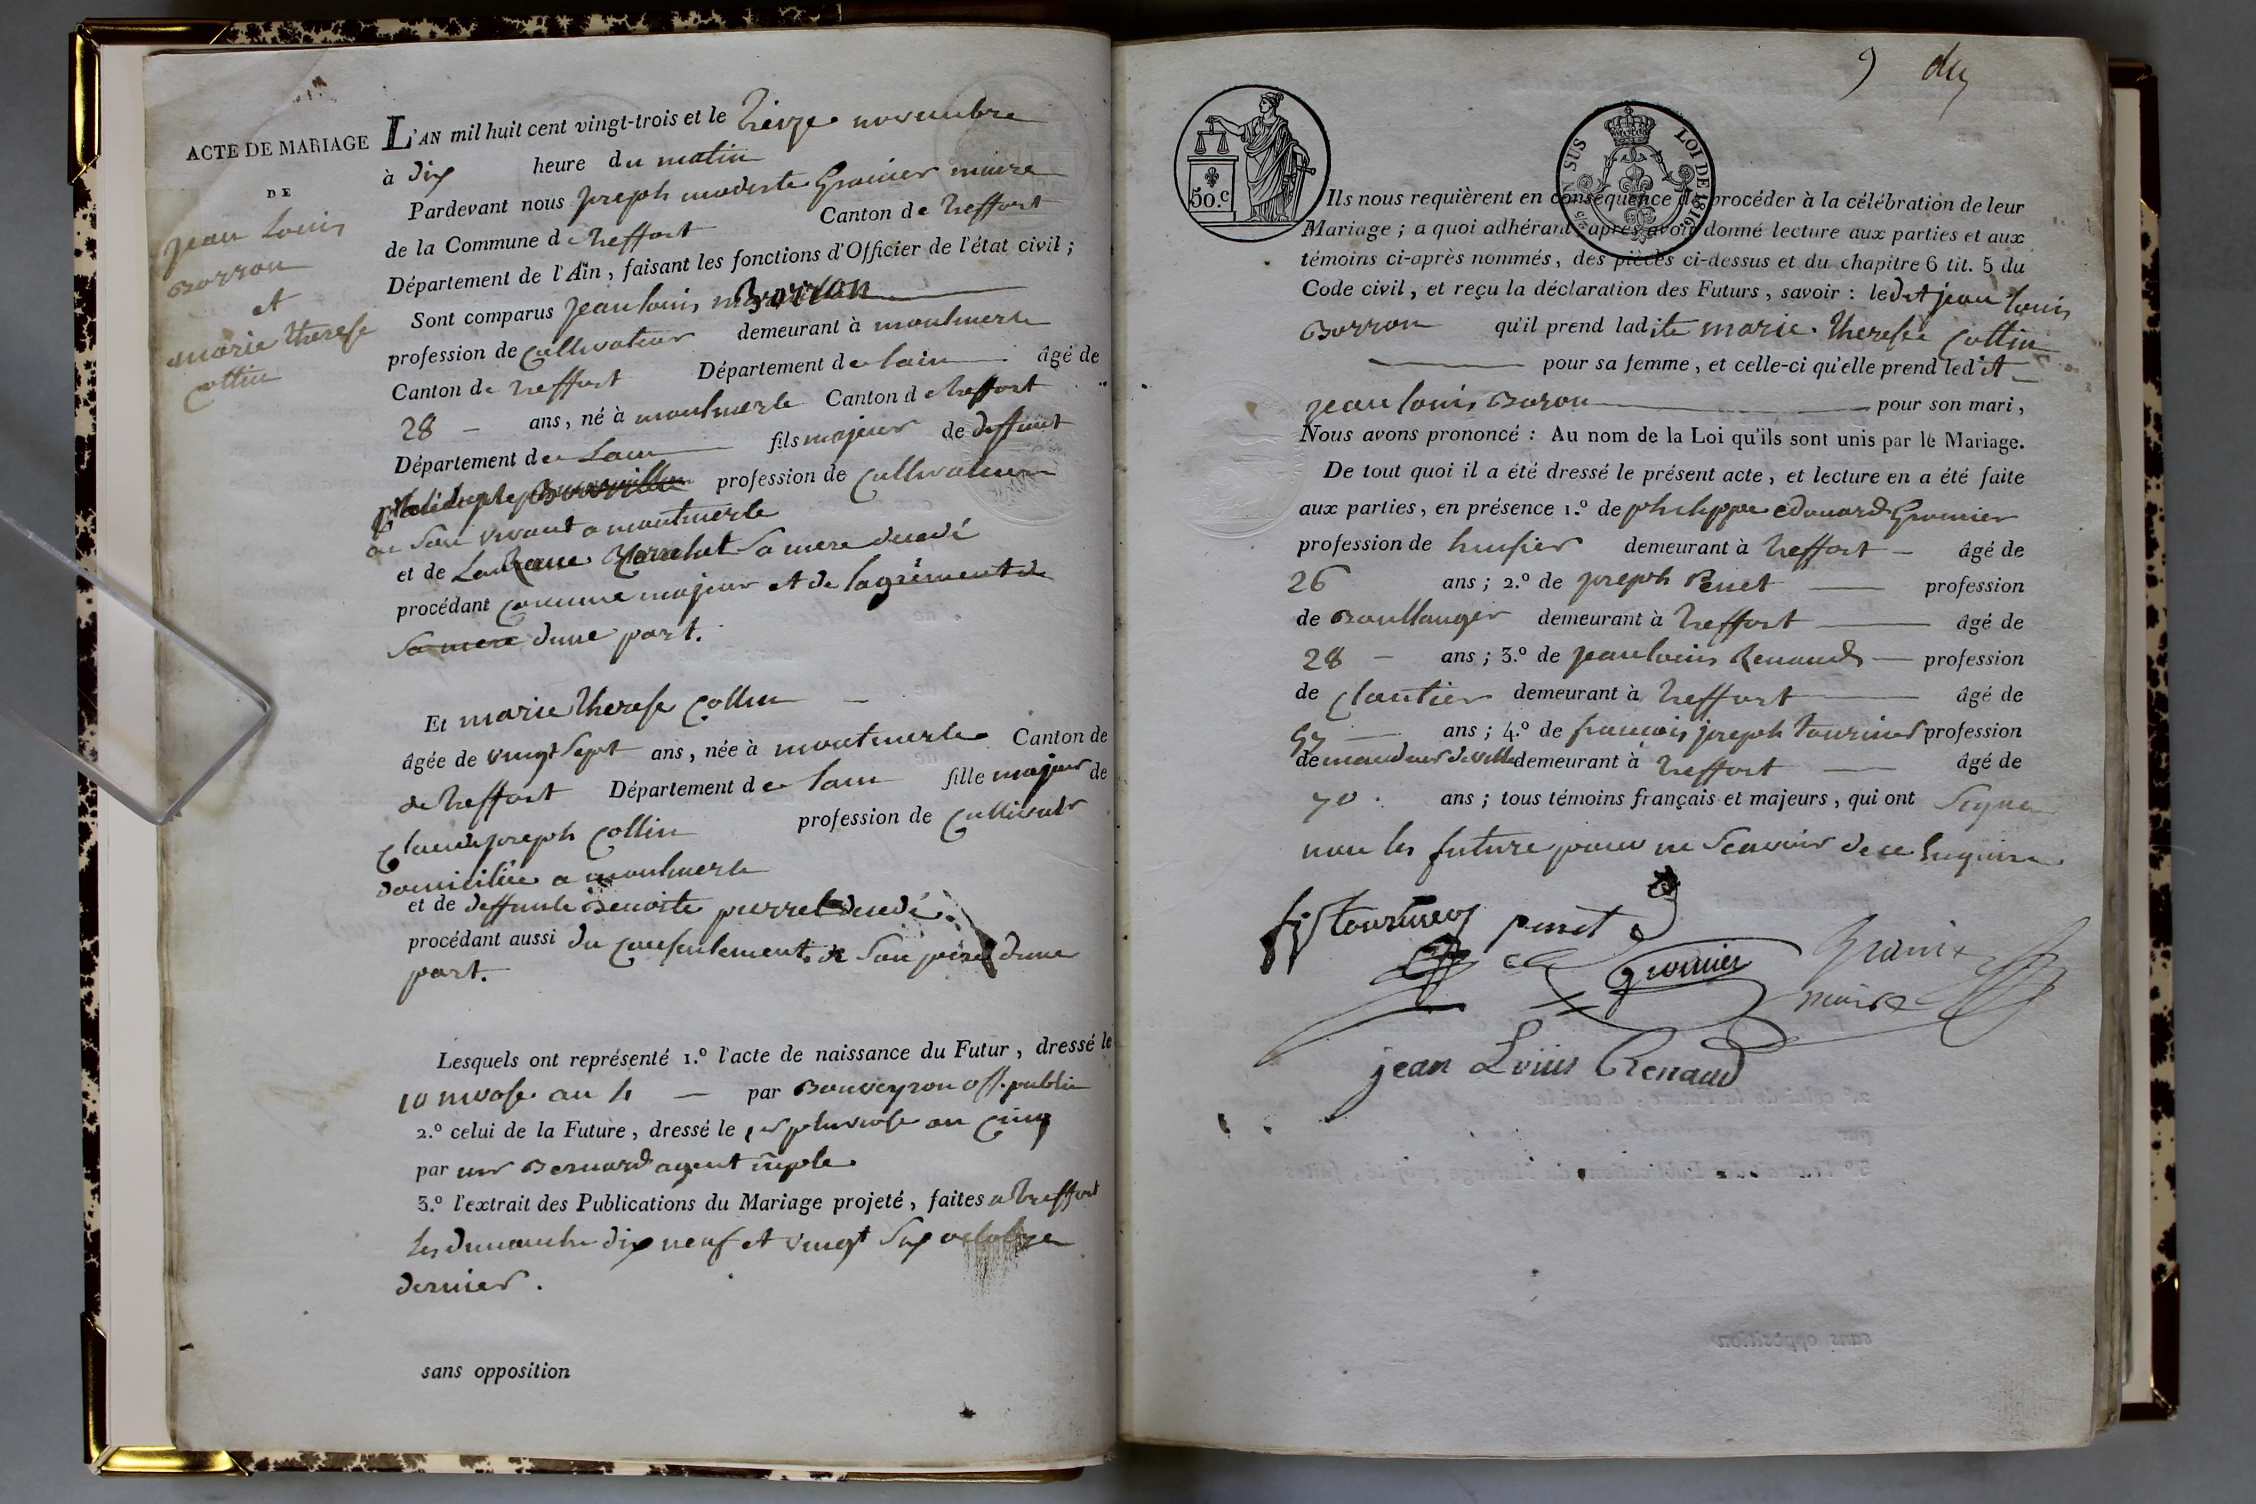 ACTE DE MARIAGE
DE
jean Louis
Borron
et
marie therese
Collin
L'AN mil huit cent vingt-trois et le treize novembre
à dix heure du matin
Pardevant nous joseph modeste Gromier maire
de la Commune de treffort Canton de treffort
Département de l'Ain, faisant les fonctions d'Officier de l'état civil;
Sont comparus jean louis Borron
profession de Cultivateur demeurant à montmerle
Canton de treffort Département de lain âgé de
28 ans, né à montmerle Canton de treffort
Département de Lain fils majeur de deffunt
profession de Cultivateur
de Son vivant a montmerle
et de Sa mere decedé
procédant Comme majeur et de lagrément de
Sa mere dune part.
Et marie therese Collin
âgée de vingt Sept ans, née à montmerle Canton de
de treffort Département de lain fille majeur de
Claude joseph Collin profession de Cultivatr
domiciliée a montmerle
et de deffunte Benoite pierret decedé
procédant aussi du Consentement de Son pere dune
part.
Lesquels ont représenté 1.º l'acte de naissance du Futur, dressé le
10 nivose an 4 par Bouveyron off. public
2.º celui de la Future, dressé le 1er pluviose an Cinq
par mr Bernard agent
3.º l'extrait des Publications du Mariage projeté, faites a treffort
les dimanche dix neuf et vingt Six octobre
dernier.
sans opposition
9
50 C
LOI DE 1816
EN SUS
Ils nous requièrent en conséquence de procéder à la célébration de leur
Mariage; a quoi adhérant après avoir donné lecture aux parties et aux
témoins ci-après nommés, des pièces ci-dessus et du chapitre 6 tit. 5 du
Code civil, et reçu la déclaration des Futurs, savoir: ledit jean louis
Borron qu'il prend ladite marie therese Collin
pour sa femme, et celle-ci qu'elle prend ledit
jean louis Boron pour son mari,
Nous avons prononcé: Au nom de la Loi qu'ils sont unis par le Mariage.
De tout quoi il a été dressé le présent acte, et lecture en a été faite
aux parties, en présence 1.º de philippe edouard Gromier
profession de huissier demeurant à treffort âgé de
26 ans; 2.º de joseph Penet profession
de Boullanger demeurant à treffort âgé de
28 ans; 3.º de jean louis Renaud profession
de Cloutier demeurant à treffort âgé de
57 ans; 4.º de francois joseph profession
de mandeur de ville demeurant à treffort âgé de
70 ans; tous témoins français et majeurs, qui ont Signe
non les future pour ne Scavoir de ce Enquis
penet
Gromier
maire
jean Louis Renaud